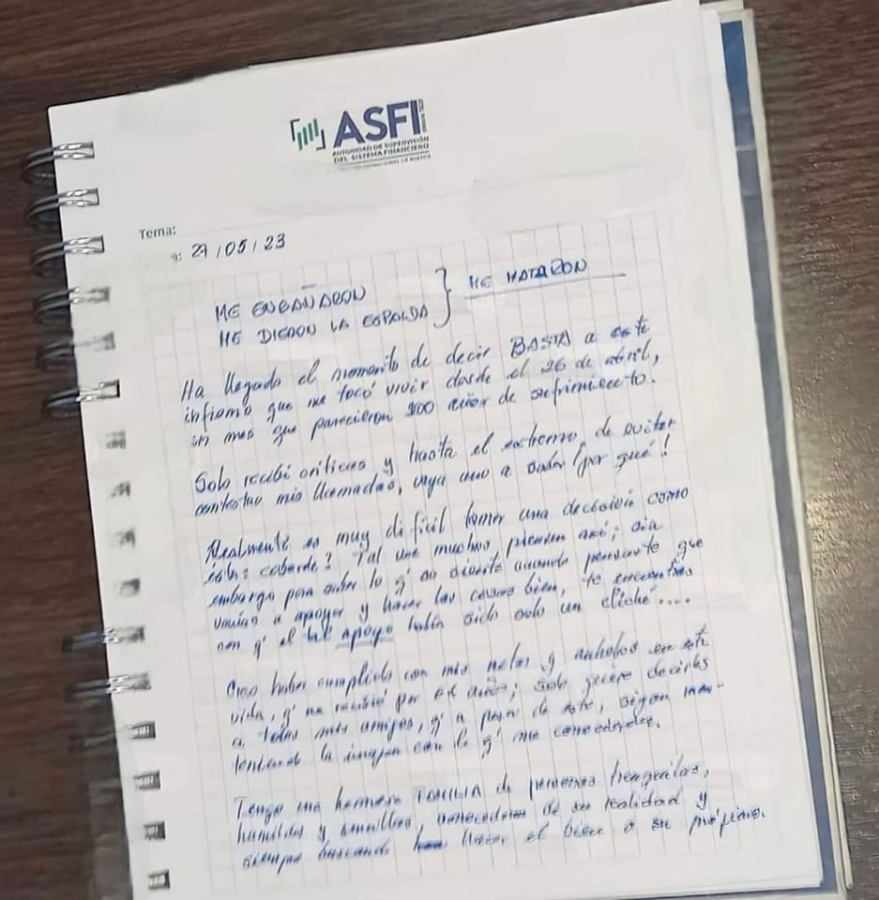 ASFI
AUTORIDAD DE SUPERVISIÓN
DEL SISTEMA FINANCIERO
Tema:
a: 27/05/23
ME ENGAÑARON
ME DIERON LA ESPALDA } ME MATARON
Ha llegado el momento de decir BASTA a este
infierno que me tocó vivir desde el 26 de abril,
un mes que parecieron 100 años de sufrimiento.
Solo recibí críticas y hasta el extremo de evitar
contestar mis llamadas, vaya uno a saber ¡por qué!
Realmente es muy difícil tomar una decisión como
ésta: cobarde? Tal vez muchos piensen así; sin
embargo para saber lo q' se siente cuando pensaste que
venías a apoyar y hacer las cosas bien, te encuentras
con q' el tal apoyo había sido solo un cliché....
Creo haber cumplido con mis metas y anhelos en esta
vida, q' me recibió por años; solo quiero decirles
a todos mis amigos, q' a pesar de esto, sigan man-
teniendo la imagen con la q' me conocieron.
Tengo una hermosa FAMILIA de personas tranquilas,
humildes y sencillas, conocedoras de su realidad y
siempre buscando hacer el bien a su prójimo.